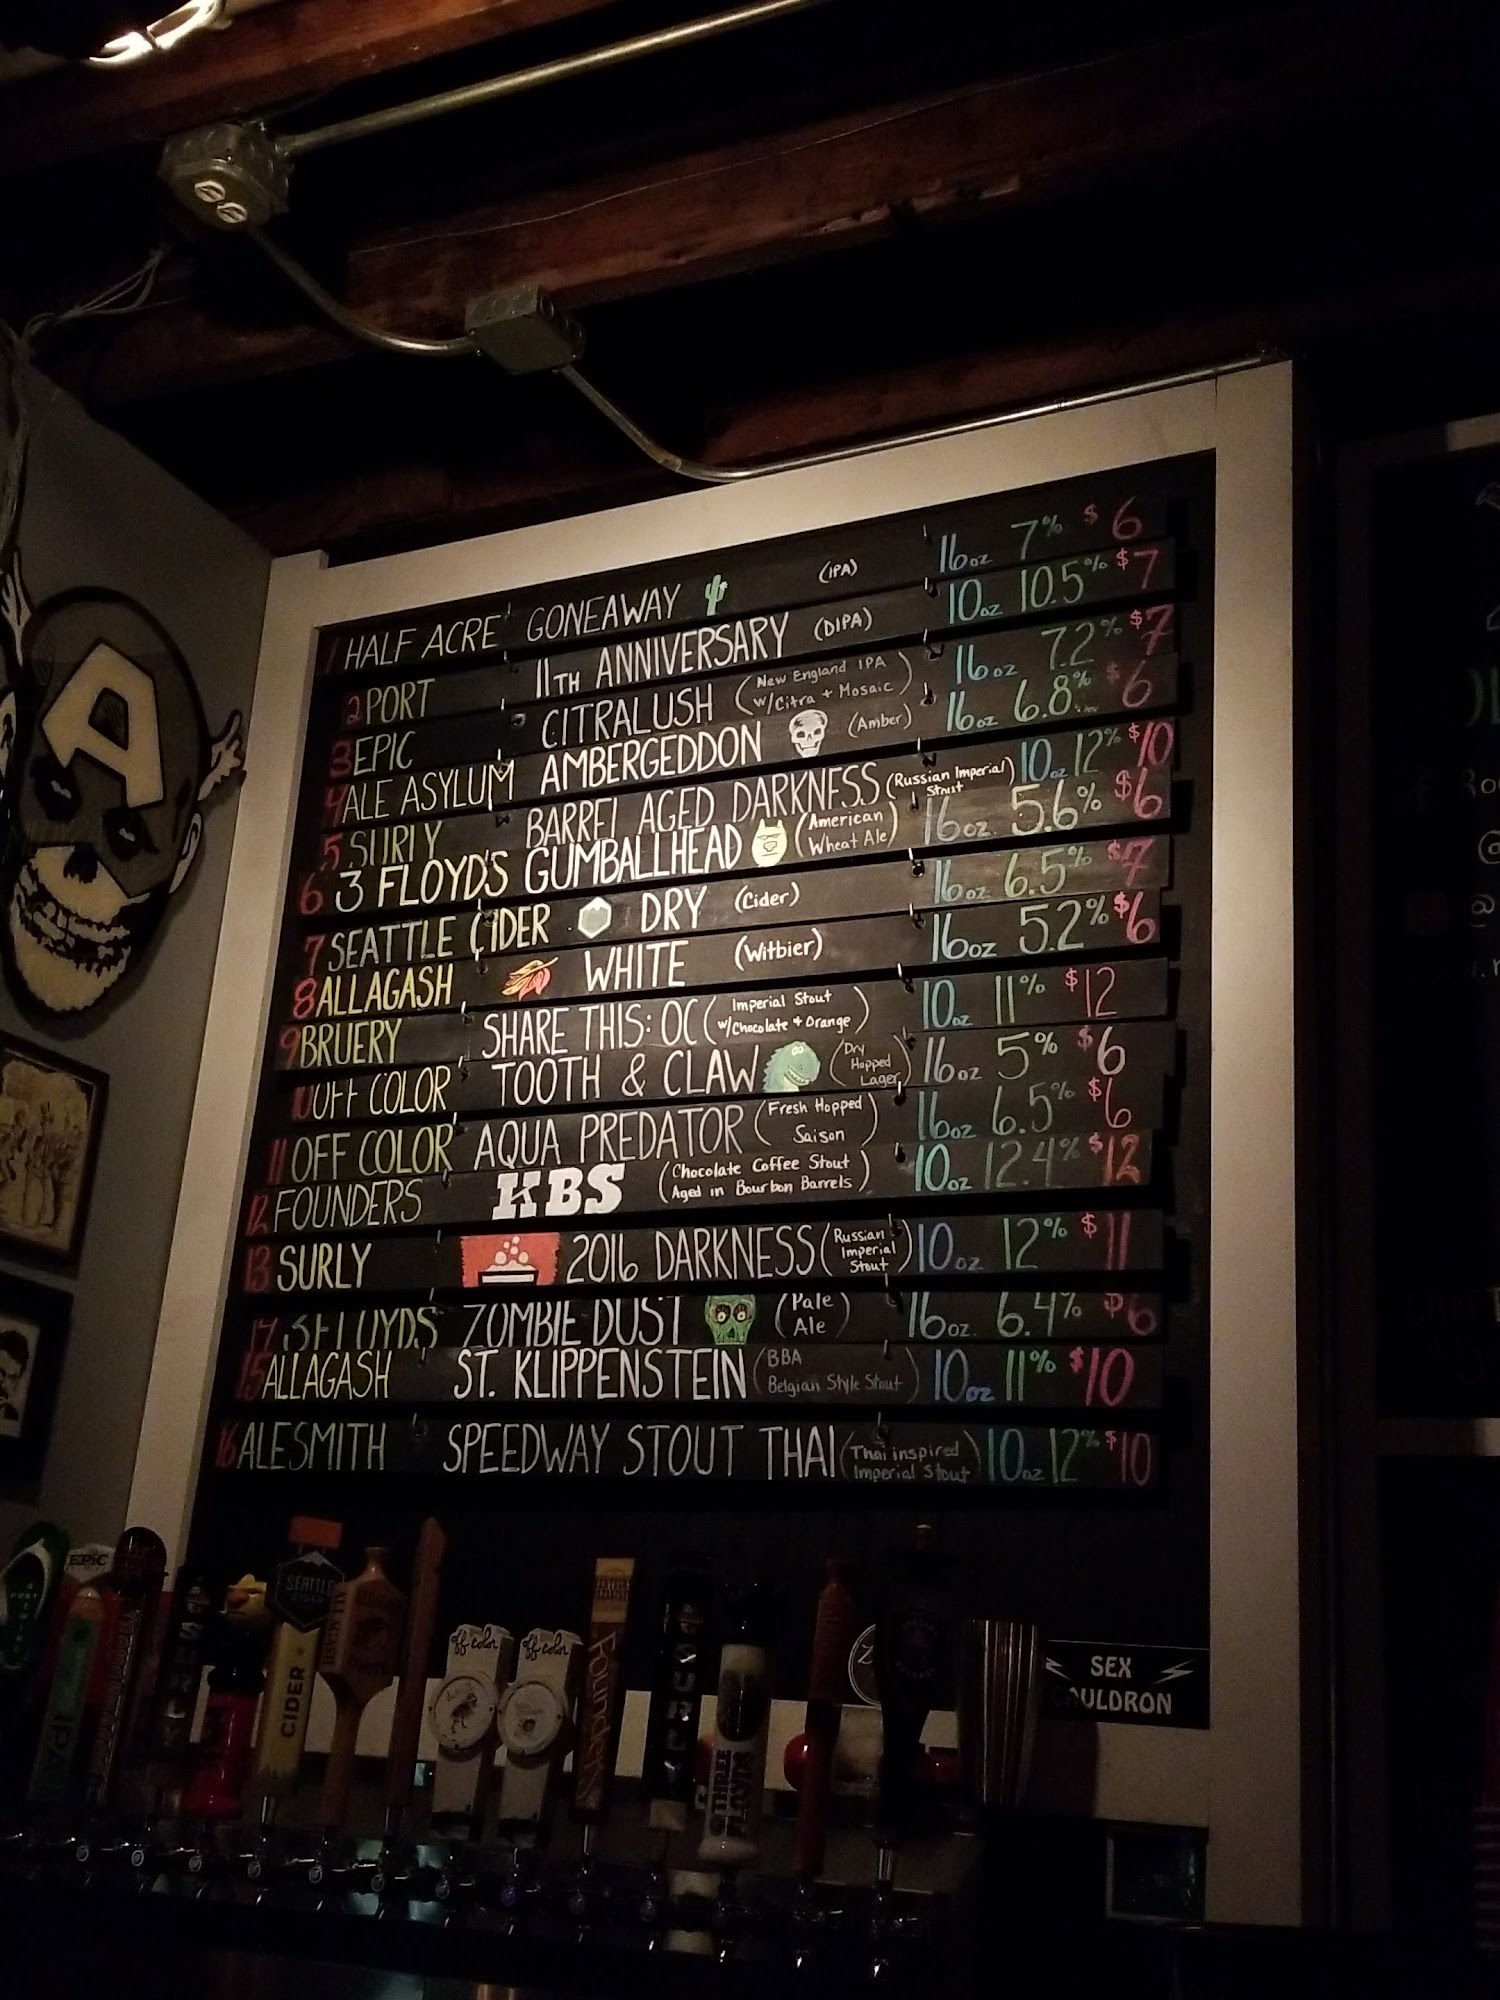 1 HALF ACRE GONEAWAY (IPA) 16oz 7% $6
2 PORT 11TH ANNIVERSARY (DIPA) 10oz 10.5% $7
3 EPIC CITRALUSH (New England IPA w/Citra + Mosaic) 16oz 7.2% $7
4 ALE ASYLUM AMBERGEDDON (Amber) 16oz 6.8% $6
5 SURLY BARREL AGED DARKNESS (Russian Imperial Stout) 10oz 12% $10
6 3 FLOYDS GUMBALLHEAD (American Wheat Ale) 16oz. 5.6% $6
7 SEATTLE CIDER DRY (Cider) 16oz 6.5% $7
8 ALLAGASH WHITE (Witbier) 16oz 5.2% $6
9 BRUERY SHARE THIS: OC (Imperial Stout w/Chocolate + Orange) 10oz 11% $12
10 OFF COLOR TOOTH & CLAW (Dry Hopped Lager) 16oz 5% $6
11 OFF COLOR AQUA PREDATOR (Fresh Hopped Saison) 16oz 6.5% $6
12 FOUNDERS KBS (Chocolate Coffee Stout Aged in Bourbon Barrels) 10oz 12.4% $12
13 SURLY 2016 DARKNESS (Russian Imperial Stout) 10oz 12% $11
14 3 FLOYDS ZOMBIE DUST (Pale Ale) 16oz. 6.4% $6
15 ALLAGASH ST. KLIPPENSTEIN (BBA Belgian Style Stout) 10oz 11% $10
16 ALESMITH SPEEDWAY STOUT THAI (Thai inspired Imperial Stout) 10oz 12% $10
A
EPIC
IPA
SEATTLE CIDER
CIDER
off color
off color
Founders
THREE FLOYDS
SEX